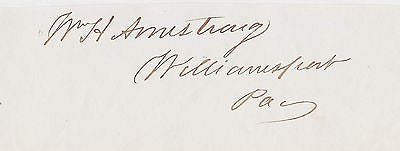 Wm H Armstrong
Williamsport
Pa